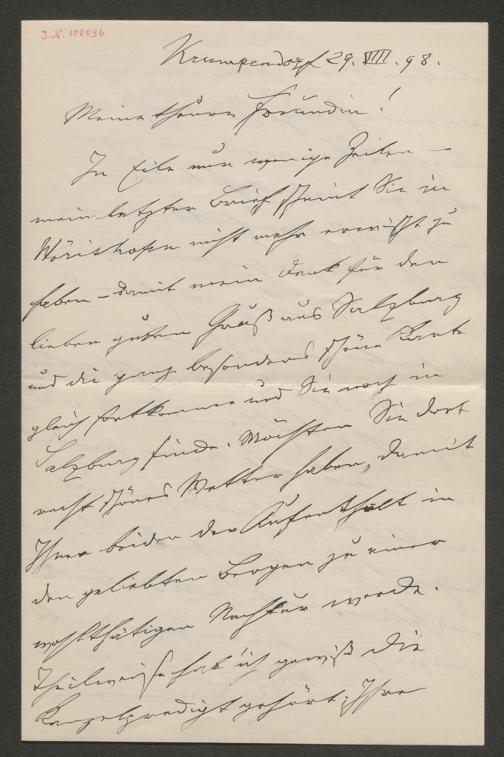 J.N. 100096
Krumpendorf 29. VIII. 98.
Meine theure Freundin!
In Eile nur wenige Zeilen –
mein letzter Brief scheint Sie in
Wörishofen nicht mehr erwischt zu
haben – damit mein Dank für den
lieben guten Gruß aus Salzburg
und die ganz besonders schöne Karte
gleich fortkomme und Sie noch in
Salzburg finde. Möchten Sie dort
recht schönes Wetter haben, damit
Ihnen beiden der Aufenthalt in
den geliebten Bergen zu einer
wohlthätigen Nachkur werde.
Theilweise hab' ich gewiß die
Kanzelpredigt gehört; Ihre